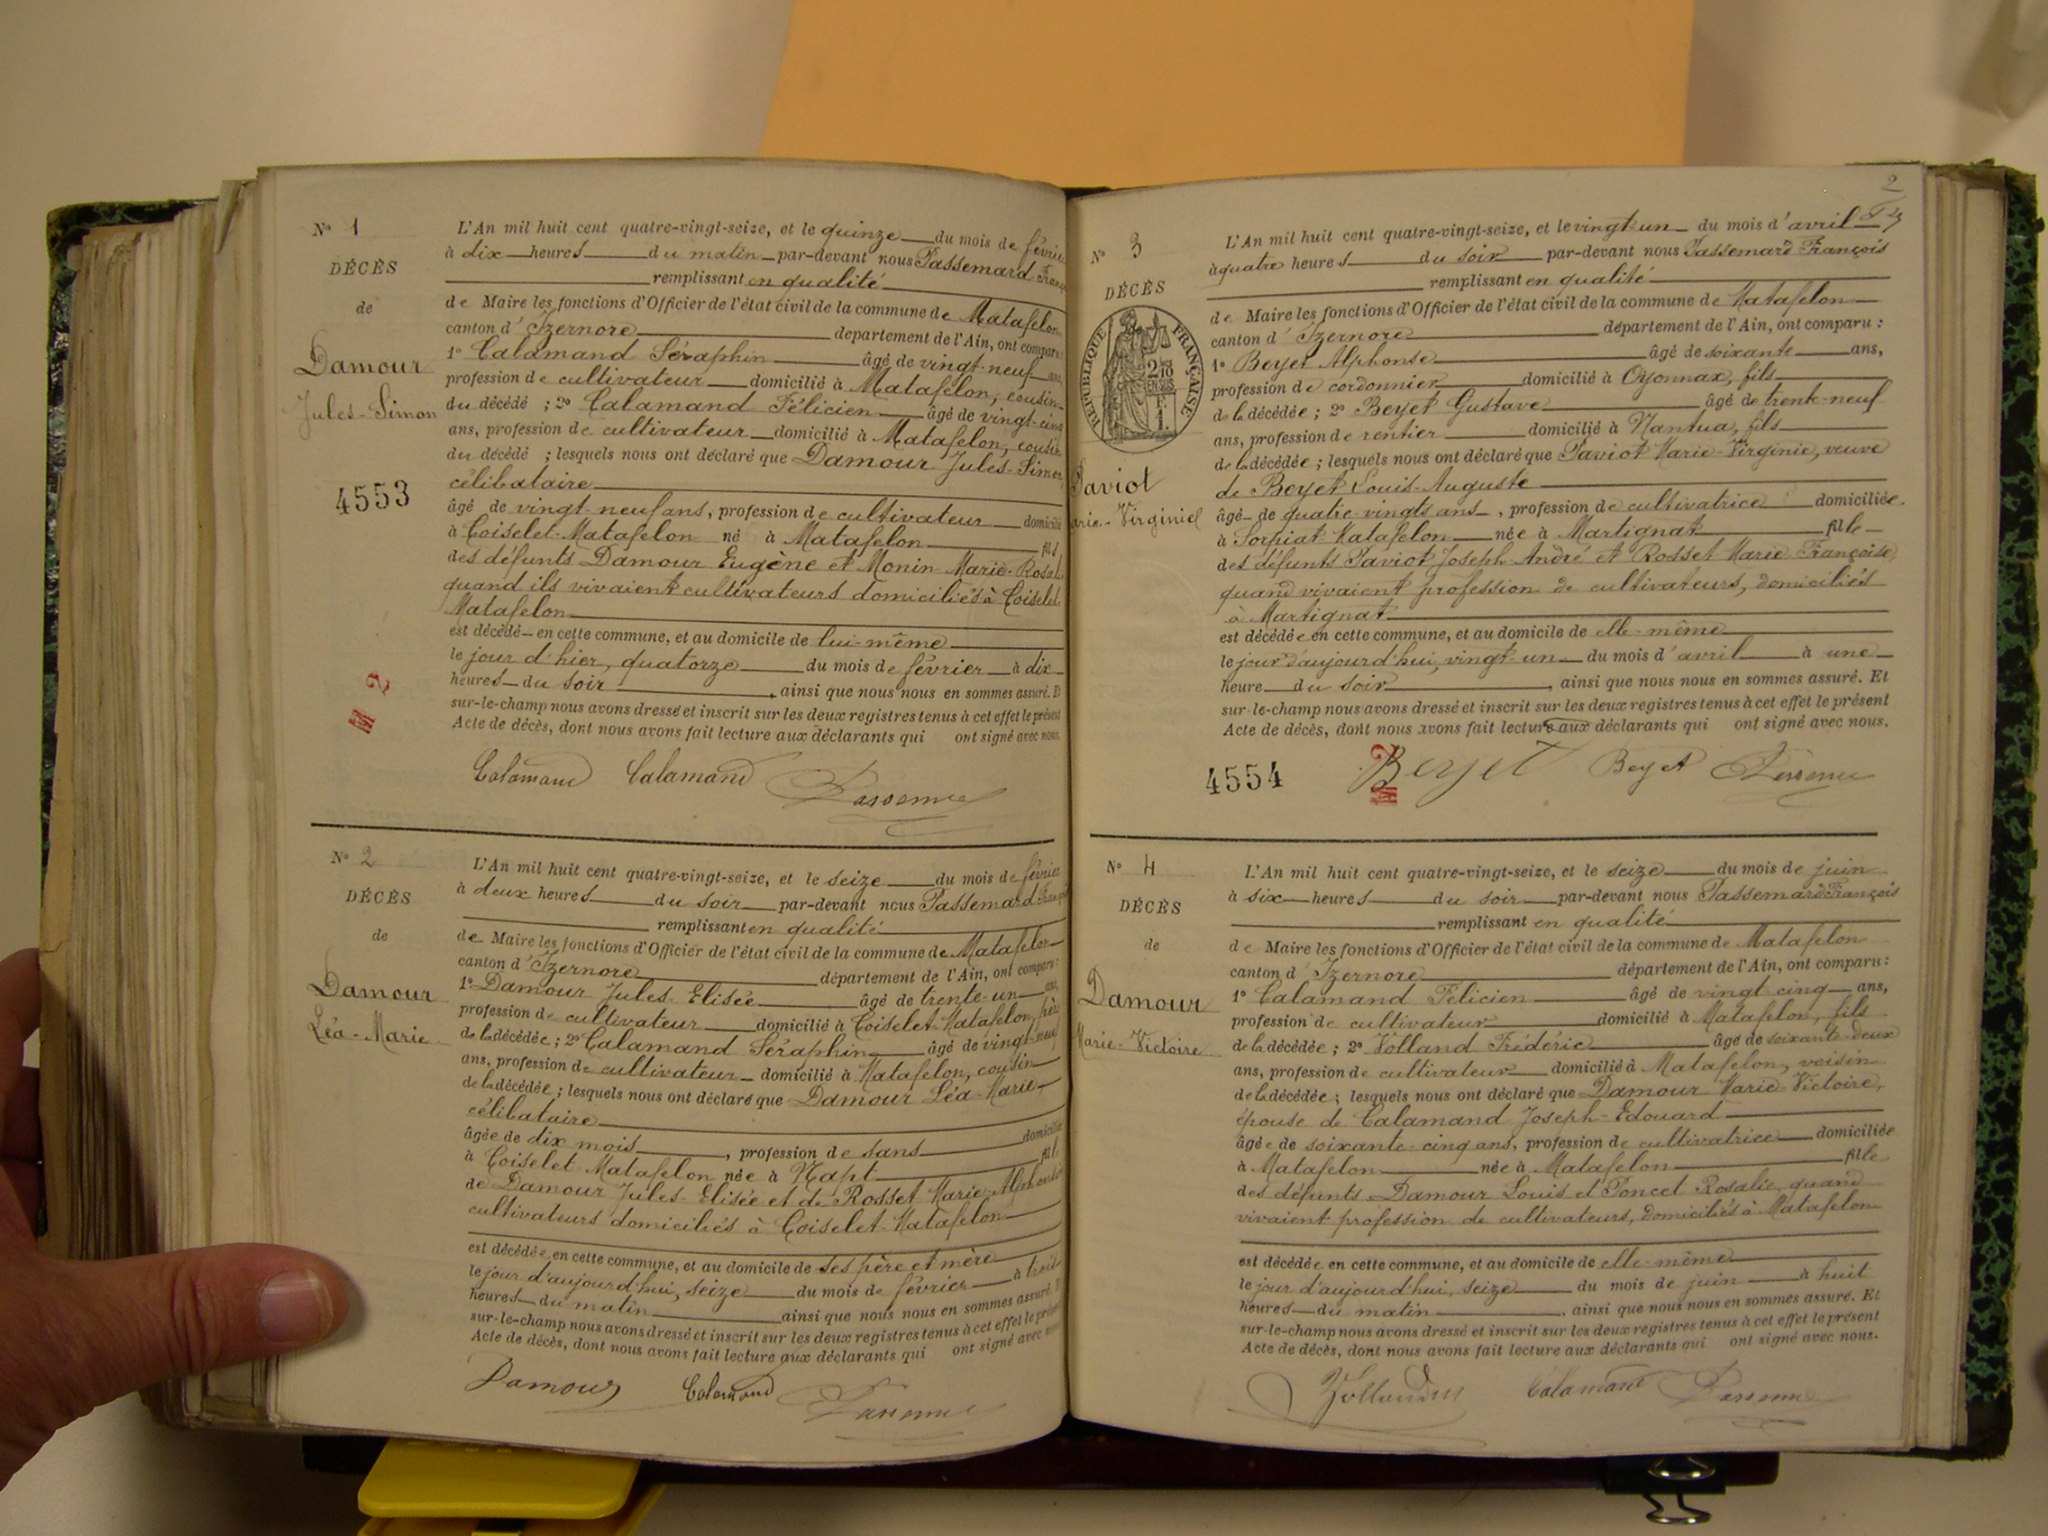 N° 1
DÉCÈS
de
Damour
Jules-Simon
4553
M 2
L'An mil huit cent quatre-vingt-seize, et le quinze du mois de février
à dix heures du matin par-devant nous Passemard
remplissant en qualité
de Maire les fonctions d'Officier de l'état civil de la commune de Matafelon
canton d'Izernore département de l'Ain, ont comparu:
1° Calamand Séraphin âgé de vingt-neuf ans,
profession de cultivateur domicilié à Matafelon, cousin
du décédé ; 2° Calamand Félicien âgé de vingt-cinq
ans, profession de cultivateur domicilié à Matafelon, cousin
du décédé ; lesquels nous ont déclaré que Damour Jules-Simon,
célibataire
âgé de vingt-neuf ans, profession de cultivateur domicilié
à Coiselet-Matafelon né à Matafelon fils
des défunts Damour Eugène et Monin Marie-Rosalie
quand ils vivaient cultivateurs domiciliés à Coiselet-
Matafelon
est décédé en cette commune, et au domicile de lui-même
le jour d'hier, quatorze du mois de février à dix
heures du soir, ainsi que nous nous en sommes assuré. Et
sur-le-champ nous avons dressé et inscrit sur les deux registres tenus à cet effet le présent
Acte de décès, dont nous avons fait lecture aux déclarants qui ont signé avec nous.
Calamand Calamand
N° 2
DÉCÈS
de
Damour
Léa-Marie
L'An mil huit cent quatre-vingt-seize, et le seize du mois de février
à deux heures du soir par-devant nous Passemard
remplissant en qualité
de Maire les fonctions d'Officier de l'état civil de la commune de Matafelon
canton d'Izernore département de l'Ain, ont comparu:
1° Damour Jules-Elisée âgé de trente-un ans,
profession de cultivateur domicilié à Coiselet-Matafelon, père
de la décédée ; 2° Calamand Séraphin âgé de vingt-neuf
ans, profession de cultivateur domicilié à Matafelon, cousin
de la décédée ; lesquels nous ont déclaré que Damour Léa-Marie
célibataire
âgée de dix mois, profession de sans domiciliée
à Coiselet Matafelon née à Napt fille
de Damour Jules-Elisée et de Rosset Marie
cultivateurs domiciliés à Coiselet-Matafelon
est décédée en cette commune, et au domicile de ses père et mère
le jour d'aujourd'hui, seize du mois de février à trois
heures du matin ainsi que nous nous en sommes assuré. Et
sur-le-champ nous avons dressé et inscrit sur les deux registres tenus à cet effet le présent
Acte de décès, dont nous avons fait lecture aux déclarants qui ont signé avec nous
Damour Calamand
2
N° 3
DÉCÈS
RÉPUBLIQUE FRANÇAISE
Paviot
Marie-Virginie
L'An mil huit cent quatre-vingt-seize, et le vingt-un du mois d'avril
à quatre heures du soir par-devant nous Passemard François
remplissant en qualité
de Maire les fonctions d'Officier de l'état civil de la commune de Matafelon
canton d'Izernore département de l'Ain, ont comparu :
1° Beyet Alphonse âgé de soixante ans,
profession de cordonnier domicilié à Oyonnax, fils
de la décédée ; 2° Beyet Gustave âgé de trente-neuf
ans, profession de rentier domicilié à Nantua, fils
de la décédée ; lesquels nous ont déclaré que Paviot Marie-Virginie, veuve
de Beyet Louis-Auguste
âgé de quatre-vingts ans, profession de cultivatrice domiciliée
à Sorpiat Matafelon née à Martignat fille
des défunts Paviot Joseph-André et Rosset Marie Françoise
quand vivaient profession de cultivateurs, domiciliés
à Martignat
est décédée en cette commune, et au domicile de elle-même
le jour d'aujourd'hui, vingt-un du mois d'avril à une
heure du soir, ainsi que nous nous en sommes assuré. Et
sur-le-champ nous avons dressé et inscrit sur les deux registres tenus à cet effet le présent
Acte de décès, dont nous avons fait lecture aux déclarants qui ont signé avec nous.
4554
M 2
Beyet Beyet
N° 4
DÉCÈS
de
Damour
Marie-Victoire
L'An mil huit cent quatre-vingt-seize, et le seize du mois de juin
à six heures du soir par-devant nous Passemard François
remplissant en qualité
de Maire les fonctions d'Officier de l'état civil de la commune de Matafelon
canton d'Izernore département de l'Ain, ont comparu :
1° Calamand Félicien âgé de vingt-cinq ans,
profession de cultivateur domicilié à Matafelon, fils
de la décédée ; 2° Volland Frédéric âgé de soixante-deux
ans, profession de cultivateur domicilié à Matafelon, voisin
de la décédée ; lesquels nous ont déclaré que Damour Marie-Victoire,
épouse de Calamand Joseph-Edouard
âgée de soixante-cinq ans, profession de cultivatrice domiciliée
à Matafelon née à Matafelon fille
des défunts Damour Louis et Poncet Rosalie, quand
vivaient profession de cultivateurs, domiciliés à Matafelon
est décédée en cette commune, et au domicile de elle-même
le jour d'aujourd'hui, seize du mois de juin à huit
heures du matin, ainsi que nous nous en sommes assuré. Et
sur-le-champ nous avons dressé et inscrit sur les deux registres tenus à cet effet le présent
Acte de décès, dont nous avons fait lecture aux déclarants qui ont signé avec nous.
Calamand